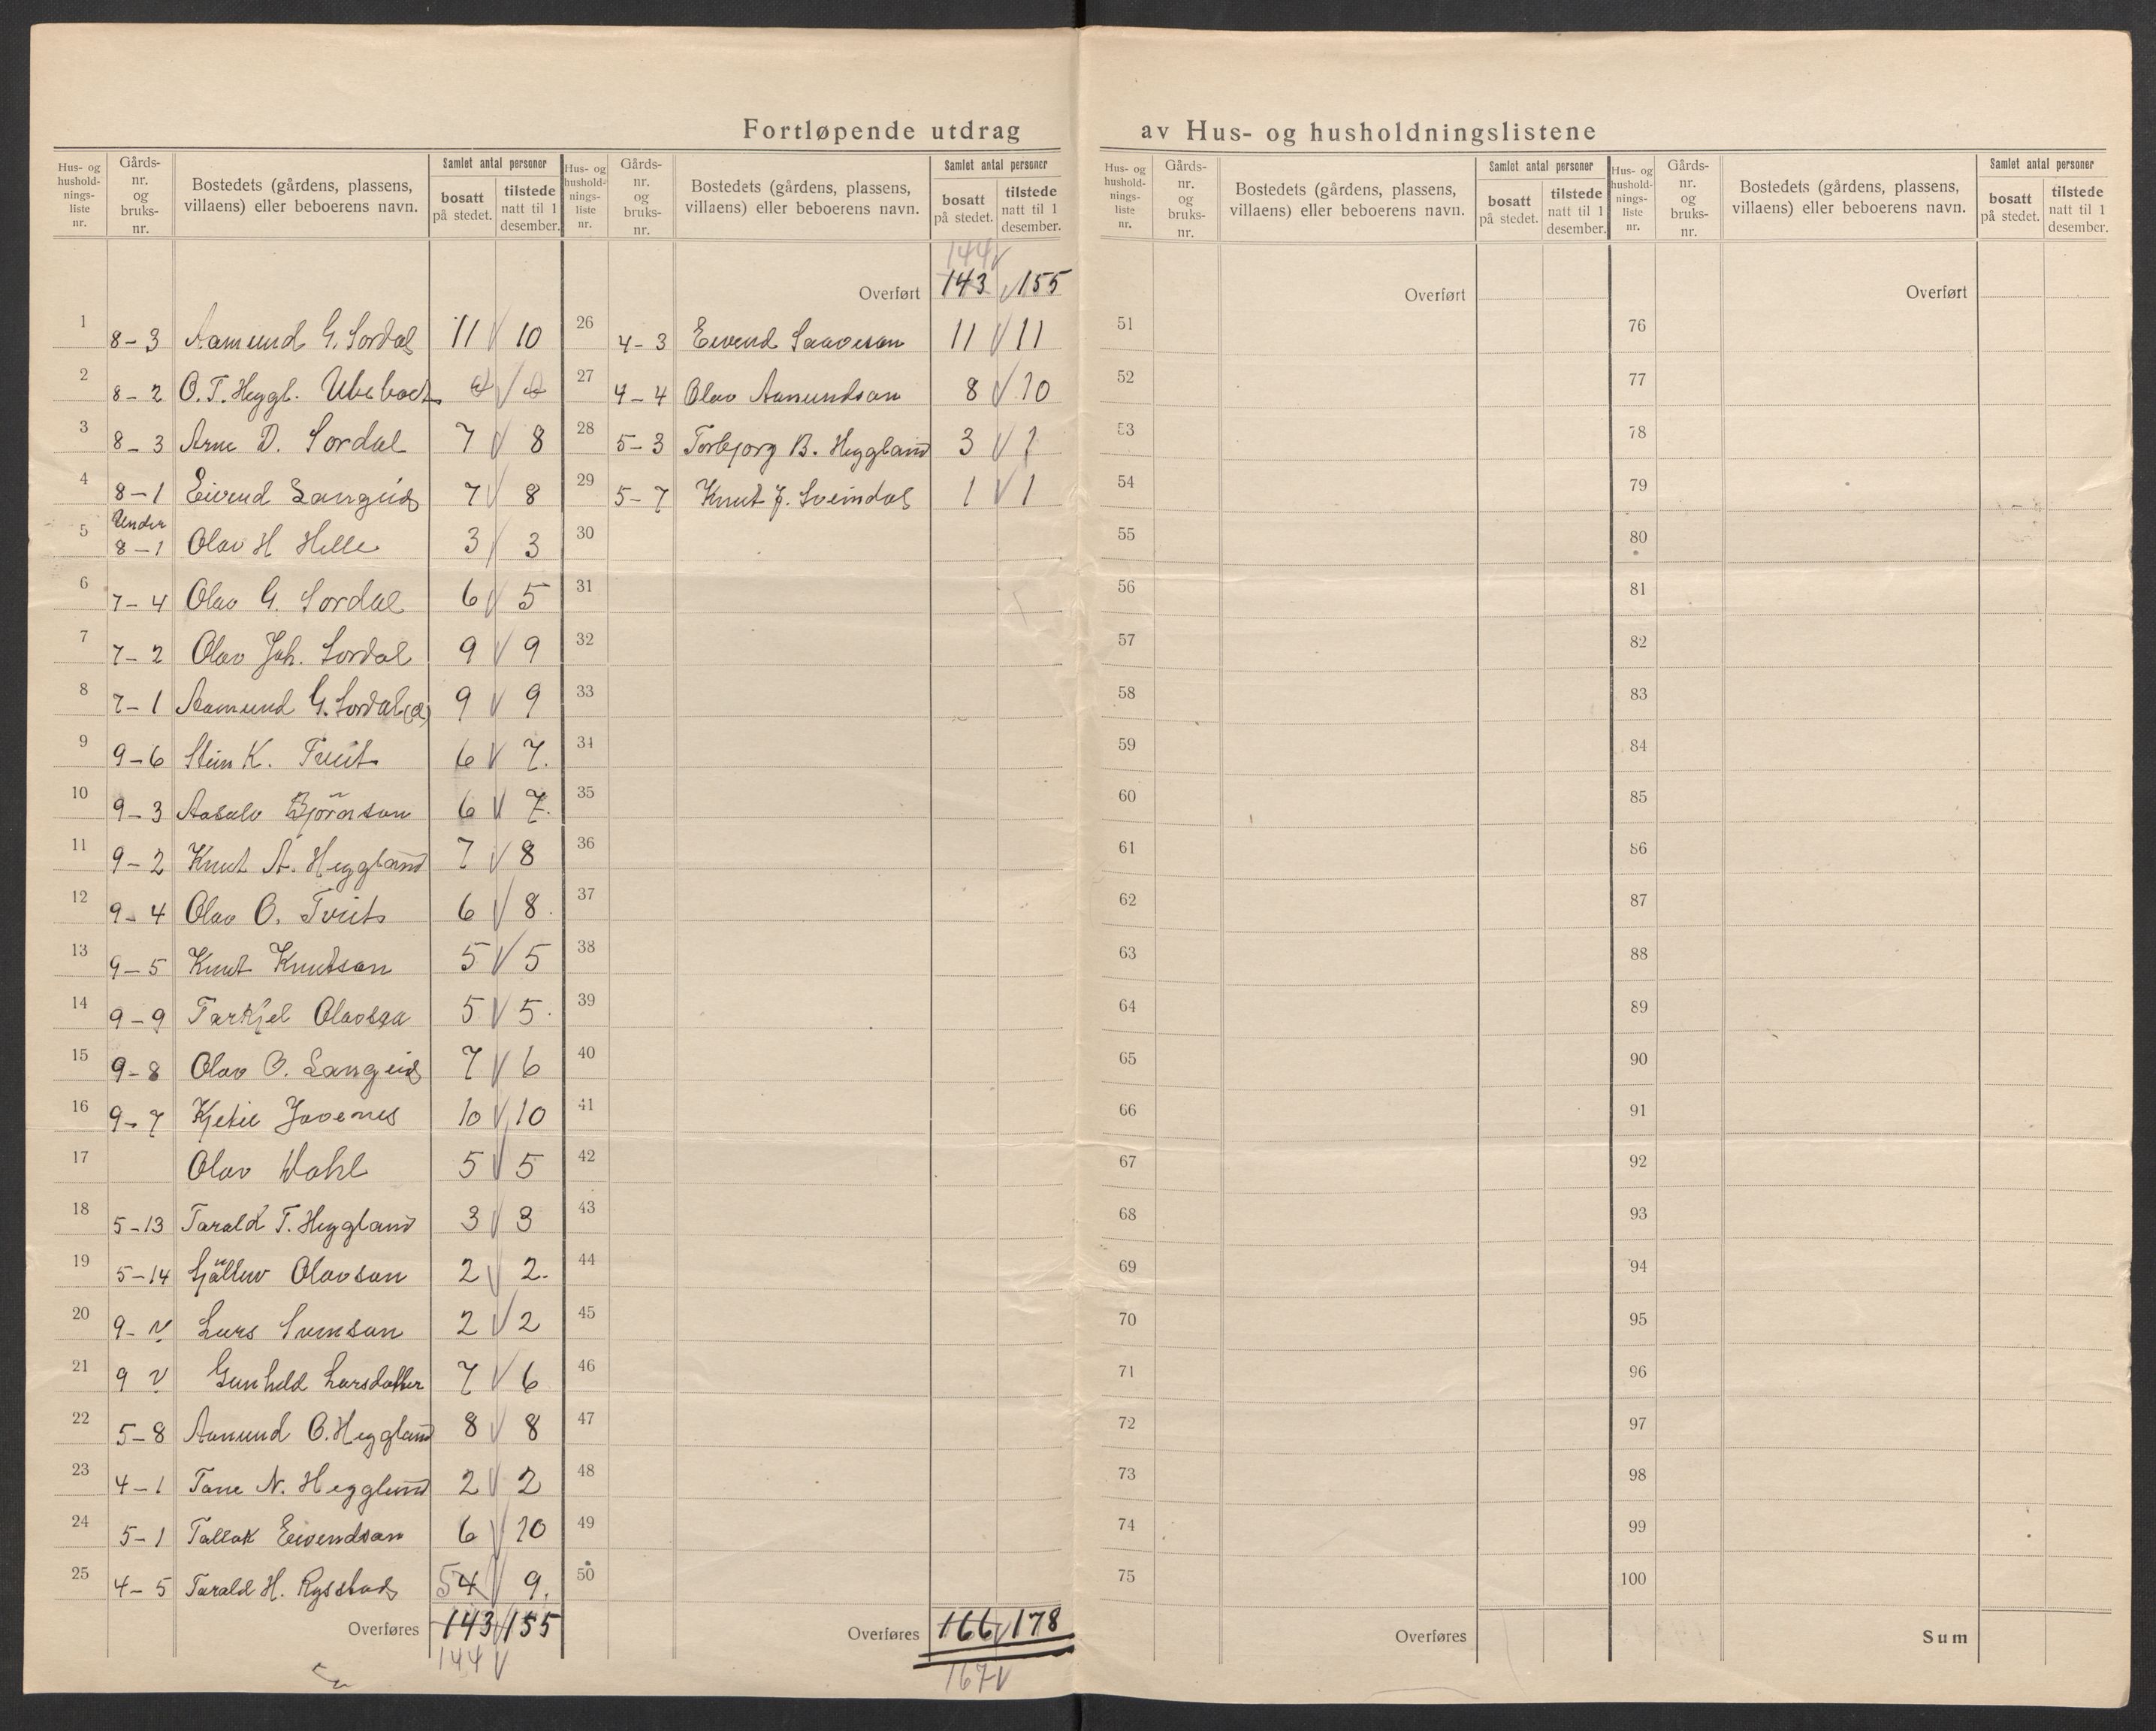 Fortløpende utdrag av Hus- og husholdningslistene
Hus- og hushold-nings-liste nr. | Gårds-nr. og bruks-nr. | Bostedets (gårdens, plassens, villaens) eller beboerens navn. | Samlet antal personer | bosatt på stedet. | tilstede natt til 1 desember.
1 8-3 Aamund G. Sordal 11 10
2 8-2 O. T. Heggl.
3 8-3 Arne D. Sordal 7 8
4 8-1 Eivend Langeid 7 8
5 Under 8-1 Olav H Helle 3 3
6 7-4 Olav G. Sordal 6 5
7 7-2 Olav Joh. Sordal 9 9
8 7-1 Aamund G. Sordal 9 9
9 9-6 Stein K. Tveit 6 7.
10 9-3 Aasulv Bjørnson 6 7.
11 9-2 Knut A. Heggland 7 8
12 9-4 Olav O. Tveit 6 8.
13 9-5 Knut Knutson 5 5
14 9-9 Tarkjel 5 5.
15 9-8 Olav O. Langeid 7 6
16 9-7 Kjetil Jovenes 10 10
17 Olav Dahl 5 5
18 5-13 Tarald T. Heggland 3 3
19 5-14 Olavson 2 2.
20 9- Lars Svenson 2 2
21 9 Gunhild Larsdatter 7 6
22 5-8 Aamund O. Heggland 8 8
23 4-1 Tone N. Heggland 2 2
24 5-1 Tallak Eivendson 6 10
25 4-5 Tarald H. Rysstad 5 4 9.
Overføres 143 155
144
Hus- og hushold-nings-liste nr. | Gårds-nr. og bruks-nr. | Bostedets (gårdens, plassens, villaens) eller beboerens navn. | Samlet antal personer | bosatt på stedet. | tilstede natt til 1 desember.
144
Overført 143 155
26 4-3 Eivend Saaveson 11 11
27 4-4 Olav Aamundson 8 10
28 5-3 Torbjorg B. Heggland 3 1
29 5-7 Knut J. Sveindal 1 1
30
31
32
33
34
35
36
37
38
39
40
41
42
43
44
45
46
47
48
49
50
Overføres 166 178
167
Hus- og hushold-nings-liste nr. | Gårds-nr. og bruks-nr. | Bostedets (gårdens, plassens, villaens) eller beboerens navn. | Samlet antal personer | bosatt på stedet. | tilstede natt til 1 desember.
Overført
51
52
53
54
55
56
57
58
59
60
61
62
63
64
65
66
67
68
69
70
71
72
73
74
75
Overføres
Hus- og hushold-nings-liste nr. | Gårds-nr. og bruks-nr. | Bostedets (gårdens, plassens, villaens) eller beboerens navn. | Samlet antal personer | bosatt på stedet. | tilstede natt til 1 desember.
Overført
76
77
78
79
80
81
82
83
84
85
86
87
88
89
90
91
92
93
94
95
96
97
98
99
100
Sum